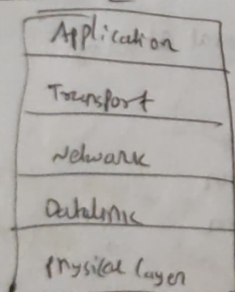 Application
Transport
Network
Datalink
Physical layer